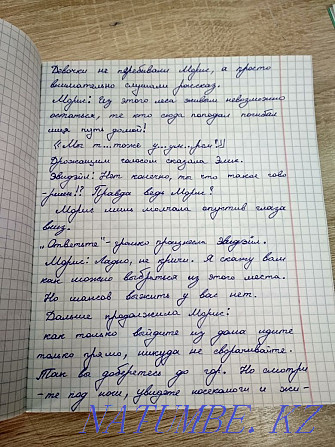 Девочки не пребивали Морис, а просто
внимательно слушали россказ.
Морис: Из этого леса живым невозможно
остаться, те кто сюда попадал погибал
ища путь домой!
((Мы т...тоже у...ум..рём?))
Дрожащим голосом сказала Элис.
Эвидэйл: Нет конечно, ты что такое гово
-ришь!? Правда ведь Морис?
Морис лишь молчала опустив глаза
вниз.
„Ответьте"- громко крикнула Эвидэйл.
Морис: Ладно, не кричи. Я скажу вам
как можно выбраться из этого места.
Но шансов выжить у вас нет.
Дальше продолжила Морис:
как только выйдите из дома идите
только прямо, никуда не сворачивайте.
Так вы доберетесь до гор. Но смотри
-те под ноги, увидете носекомоги и жи-
NATUMBE.KZ